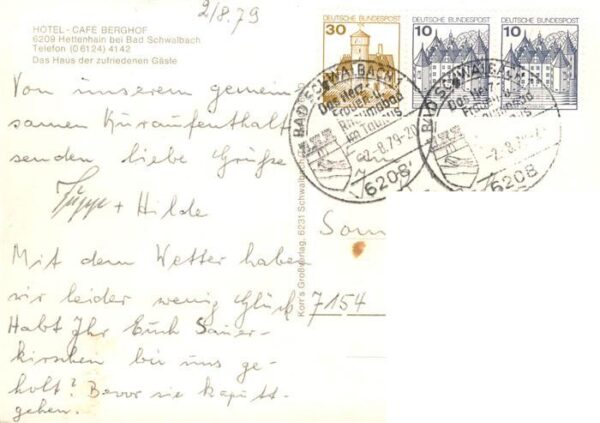 2/8.79
HOTEL - CAFÉ BERGHOF
6209 Hettenhain bei Bad Schwalbach
Telefon (06124) 4142
Das Haus der zufriedenen Gäste
Von unserem gemein-
samen Kuraufenthalt
senden liebe Grüße
+ Hilde
Mit dem Wetter haben
wir leider wenig Glück
Habt Ihr Euch Sauer-
kirschen bei uns ge-
holt? Bevor sie kaputt-
gehen.
Korr's Großverlag, 6231 Schwalbach
30
DEUTSCHE BUNDESPOST
10
DEUTSCHE BUNDESPOST
10
DEUTSCHE BUNDESPOST
BAD SCHWALBACH
Das Herz-
Frauen-&
Rheumabad
im Taunus
-2.-8.79-20
6208
BAD SCHWALBACH
Das Herz-
Frauen-&
Rheumabad
im Taunus
-2.-8.79
6208
Fam
7154